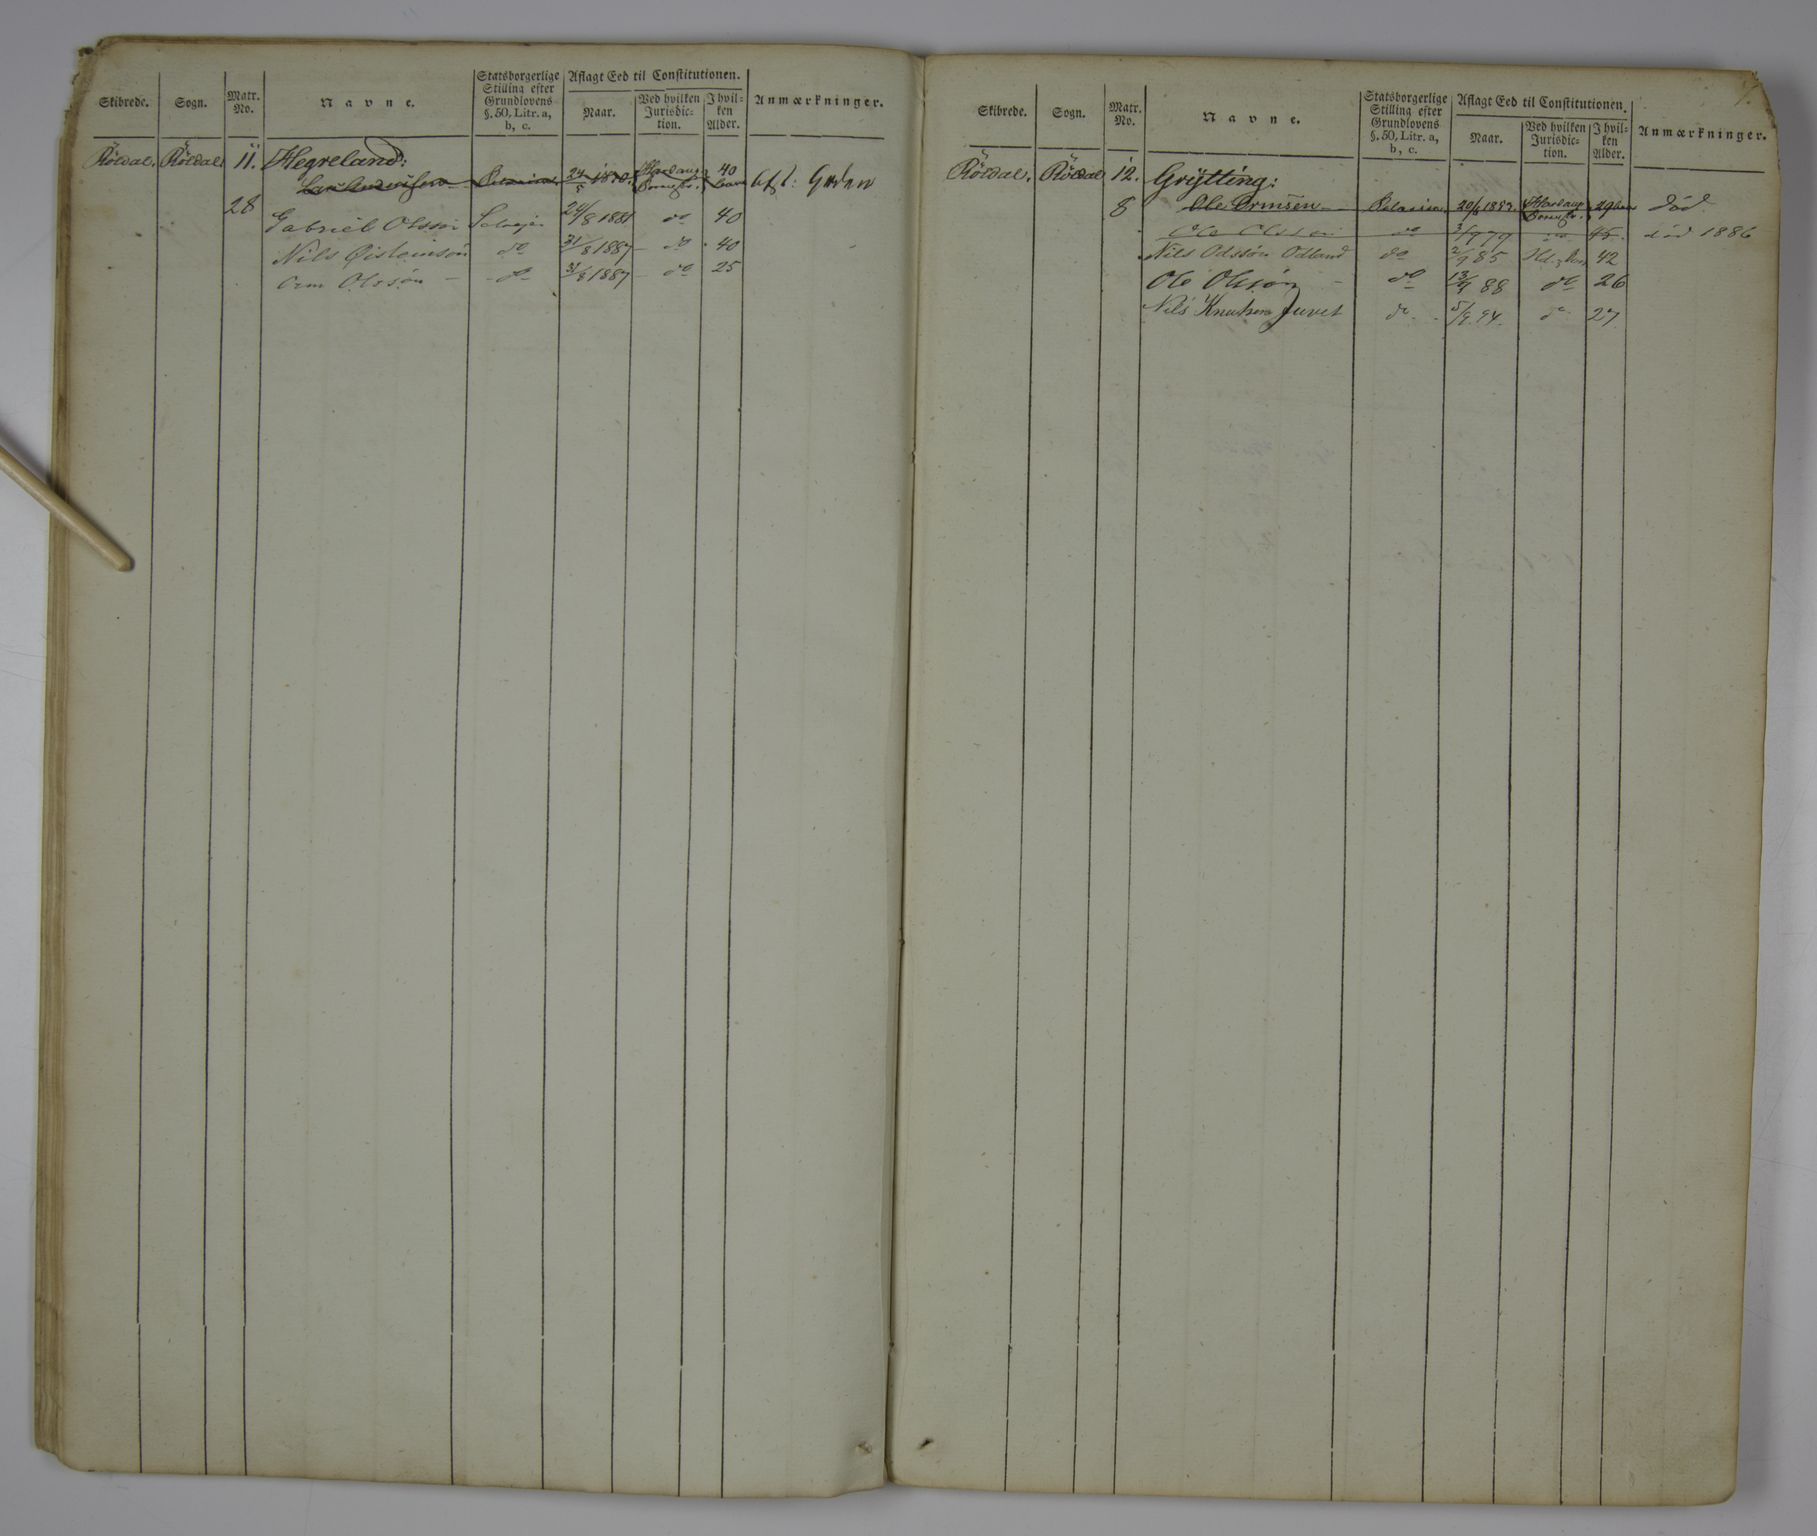 Skibrede. Sogn. Matr. No. Navne. Statsborgerlige Stilling efter Grundlovens §. 50, Litr. a, b, c. Aflagt Eed til Constitutionen. Naar. Ved hvilken Jurisdiction. I hvilken Alder. Anmærkninger.
Röldal. Röldal. 11. Hegreland:
24/5 1870. Hardang: 40
28 Gabriel Olssøn Selvejer 24/8 1881 do 40
Nils Øisteinsøn do 31/8 1887 do 40
Orm Olssøn do 31/8 1887 do 25
Skibrede. Sogn. Matr. No. Navne. Statsborgerlige Stilling efter Grundlovens §. 50, Litr. a, b, c. Aflagt Eed til Constitutionen. Naar. Ved hvilken Jurisdiction. I hvilken Alder. Anmærkninger.
Röldal. Röldal 12. Grytting:
8 Ole Ormsen Hardang: 29 död.
Ole Olssøn do 3/9 79 do 45. död 1886
Nils Odssøn Odland do 2/9 85 42
Ole Olssøn do 13/9 88 do 26
Nils Knutsen Juvet do. 5/9. 94. do. 27.